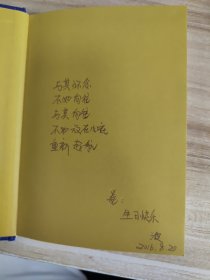 与其怀念
不如向往
与其向往
不如放在心底
重新起航
生日快乐
2016.8.20